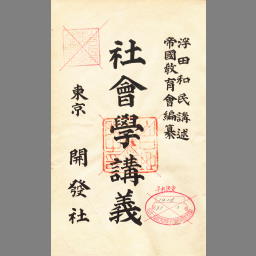 浮田和民講述
帝國敎育會編纂
社會學講義
東京 開發社